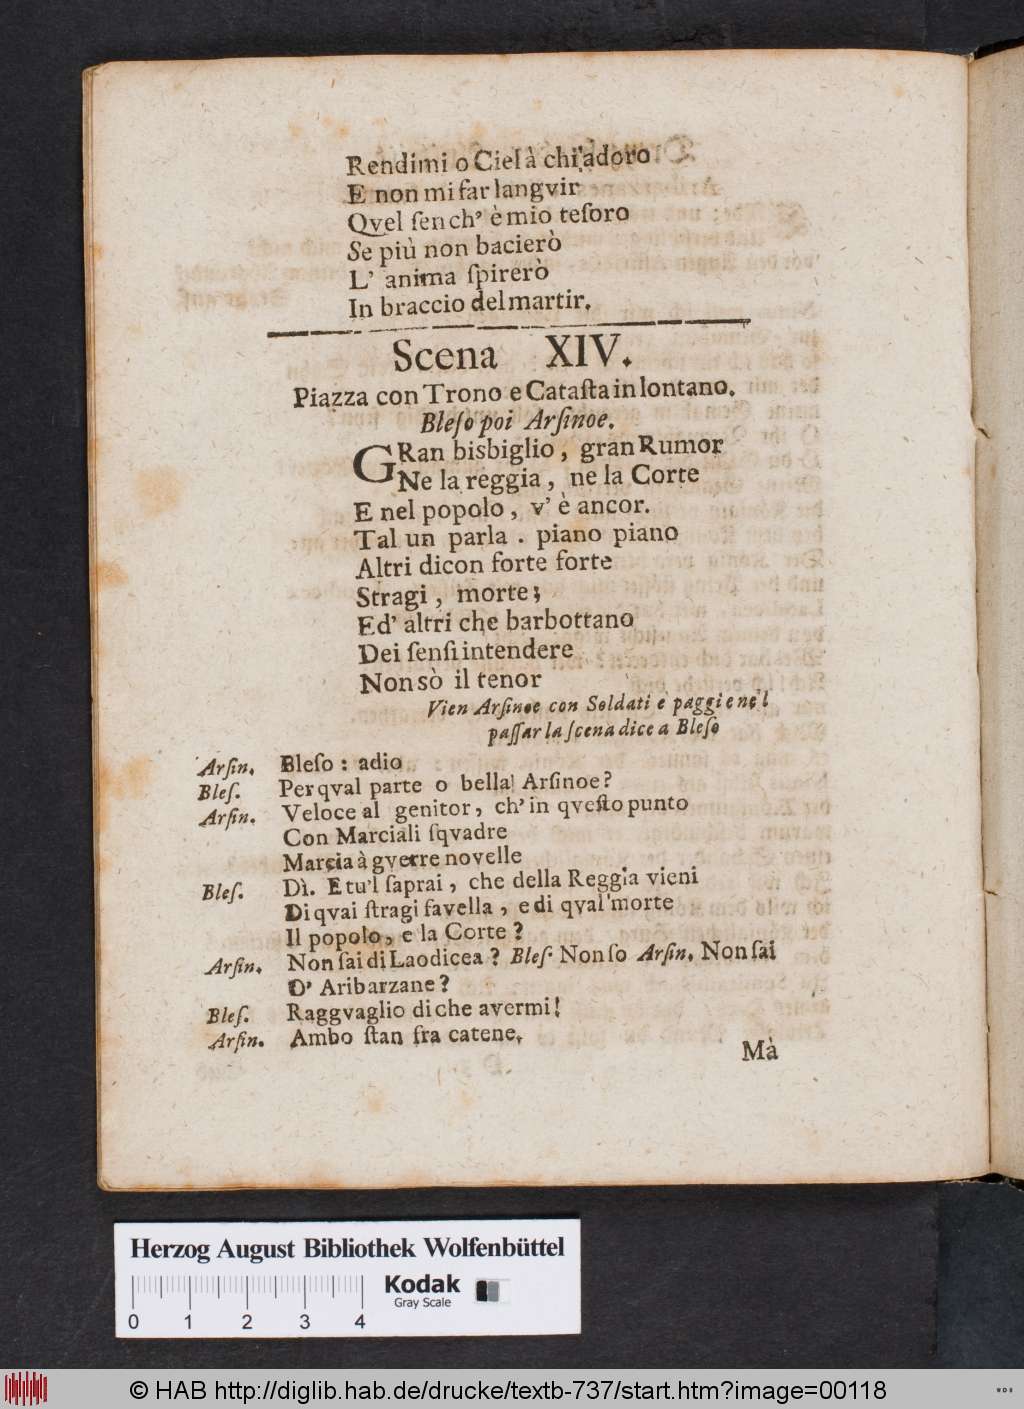 Rendimi o Ciel à chi'adoro
E non mi far langvir
Qvel ſen ch' è mio teſoro
Se più non bacierò
L' anima ſpirerò
In braccio del martir.
Scena XIV.
Piazza con Trono e Cataſta in lontano.
Bleſo poi Arſinoe.
GRan bisbiglio, gran Rumor
Ne la reggia, ne la Corte
E nel popolo, v' è ancor.
Tal un parla. piano piano
Altri dicon forte forte
Stragi, morte;
Ed' altri che barbottano
Dei ſenſi intendere
Non sò il tenor
Vien Arſinoe con Soldati e paggi e ne'l
paſſar la ſcena dice a Bleſo
Arſin. Bleſo: adio
Bleſ. Per qval parte o bella Arſinoe?
Arſin. Veloce al genitor, ch' in qveſto punto
Con Marciali ſqvadre
Marcia à gverre novelle
Bleſ. Dì. E tu'l ſaprai, che della Reggia vieni
Di qvai ſtragi favella, e di qval' morte
Il popolo, e la Corte?
Arſin. Non ſai di Laodicea? Bleſ. Non ſo Arſin. Non ſai
D' Aribarzane?
Bleſ. Raggvaglio di che avermi!
Arſin. Ambo ſtan fra catene.
Mà
Herzog August Bibliothek Wolfenbüttel
Kodak
Gray Scale
0 1 2 3 4
© HAB http://diglib.hab.de/drucke/textb-737/start.htm?image=00118